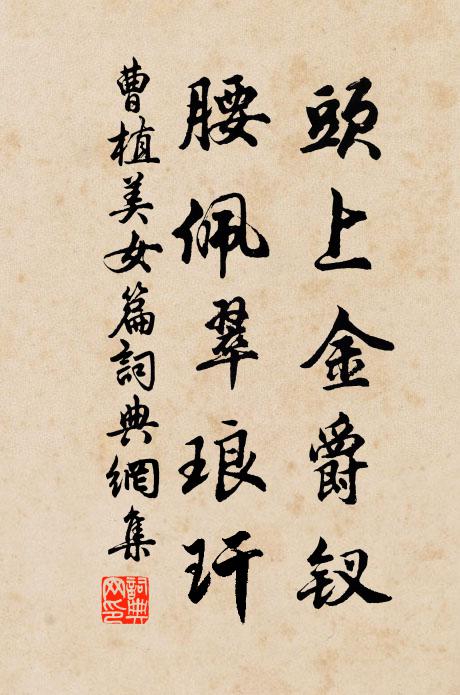 頭上金爵釵
腰佩翠琅玕
曹植美女篇詞典網集
詞典网印